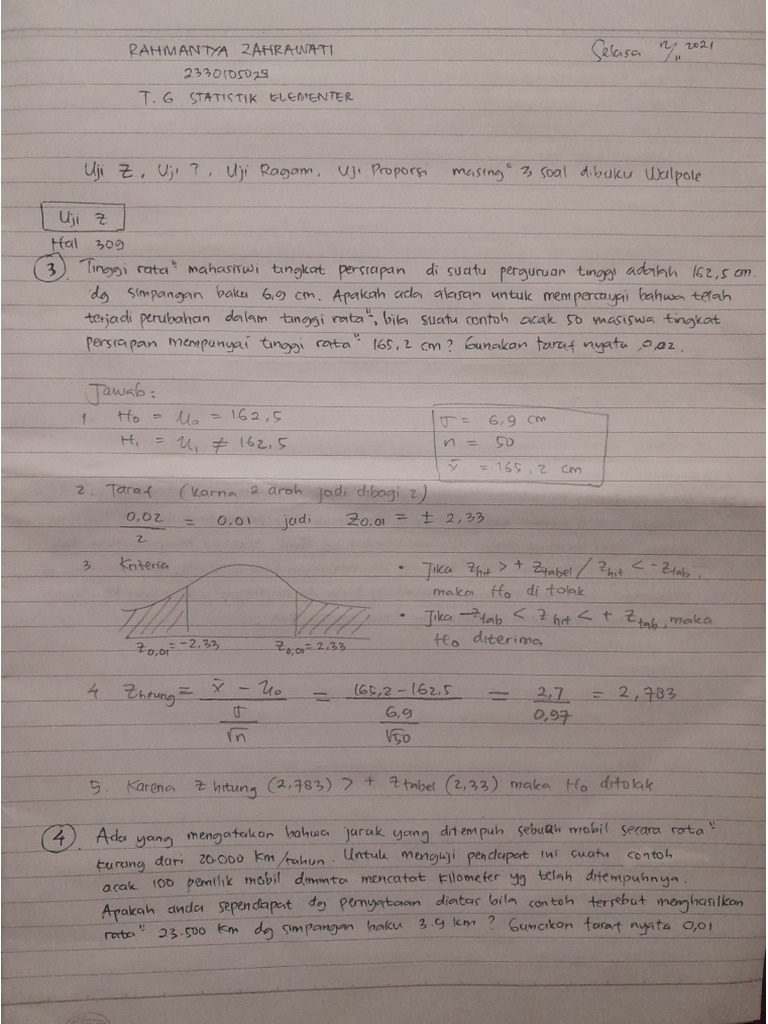 RAHMANTYA ZAHRAWATI
Selasa 12/11 2021
2330105029
T. 6 STATISTIK ELEMENTER
Uji Z, Uji ?, Uji Ragam, Uji Proporsi masing" 3 soal dibuku Walpole
Uji Z
Hal 309
3. Tinggi rata" mahasiswi tingkat persiapan di suatu perguruan tinggi adalah 162,5 cm.
dg simpangan baku 6,9 cm. Apakah ada alasan untuk mempercayai bahwa telah
terjadi perubahan dalam tinggi rata", bila suatu contoh acak 50 masiswa tingkat
persiapan mempunyai tinggi rata" 165,2 cm? Gunakan taraf nyata 0,02.
Jawab:
1. H₀ = μ₀ = 162,5
H₁ = μ₁ ≠ 162,5
σ = 6,9 cm
n = 50
x̄ = 165,2 cm
2. Taraf (karna 2 arah jadi dibagi 2)
0,02/2 = 0,01 jadi Z0,01 = ± 2,33
3. Kriteria
• Jika Zhit > + Ztabel / Zhit < -Ztab,
maka H₀ di tolak
• Jika -Ztab < Zhit < + Ztab, maka
H₀ diterima
Z0,01 = -2,33 Z0,01 = 2,33
4 Zhitung = (x̄ - μ₀)/(σ/√n) = (165,2 - 162,5)/(6,9/√50) = 2,7/0,97 = 2,783
5. Karena Z hitung (2,783) > + Ztabel (2,33) maka H₀ ditolak
4. Ada yang mengatakan bahwa jarak yang ditempuh sebuah mobil secara rata"
kurang dari 20.000 km/tahun. Untuk menguji pendapat ini suatu contoh
acak 100 pemilik mobil diminta mencatat kilometer yg telah ditempuhnya.
Apakah anda sependapat dg pernyataan diatas bila contoh tersebut menghasilkan
rata" 23.500 km dg simpangan baku 3.9 km ? Gunakan taraf nyata 0,01